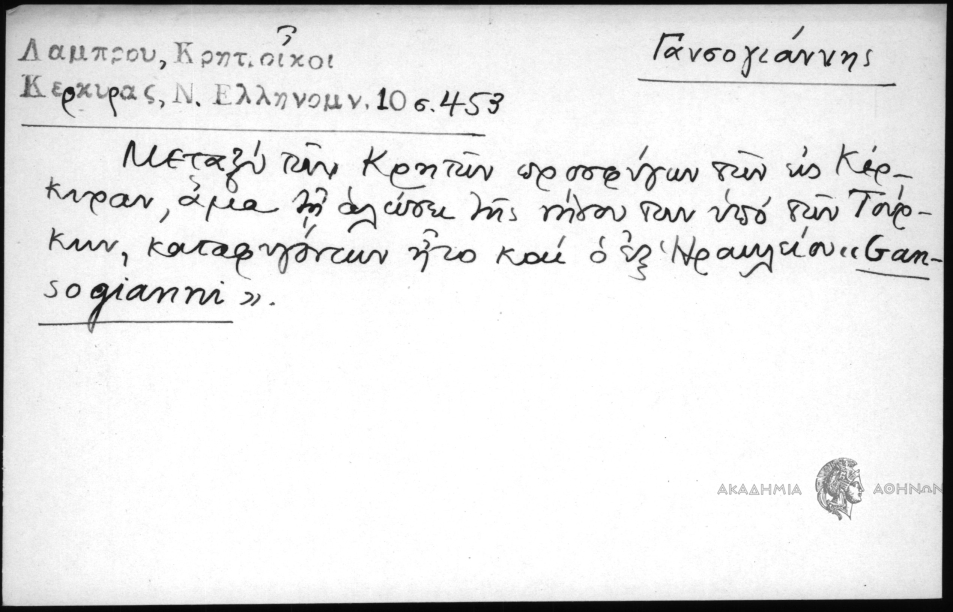 Γανσογιάννης
Λαμπρου, Κρητ. οἶκοι
Κερκυρας, Ν. Ελληνομν. 10 σ. 453
Μεταξύ τῶν Κρητῶν προσφύγων τῶν εἰς Κέρ-
κυραν, ἅμα τῇ ἁλώσει τῆς νήσου των ὑπό τῶν Τούρ-
κων, καταφυγόντων ἦτο καί ὁ ἐξ Ἡρακλείου "Gan-
sogianni".
ΑΚΑΔΗΜΙΑ ΑΘΗΝΩΝ